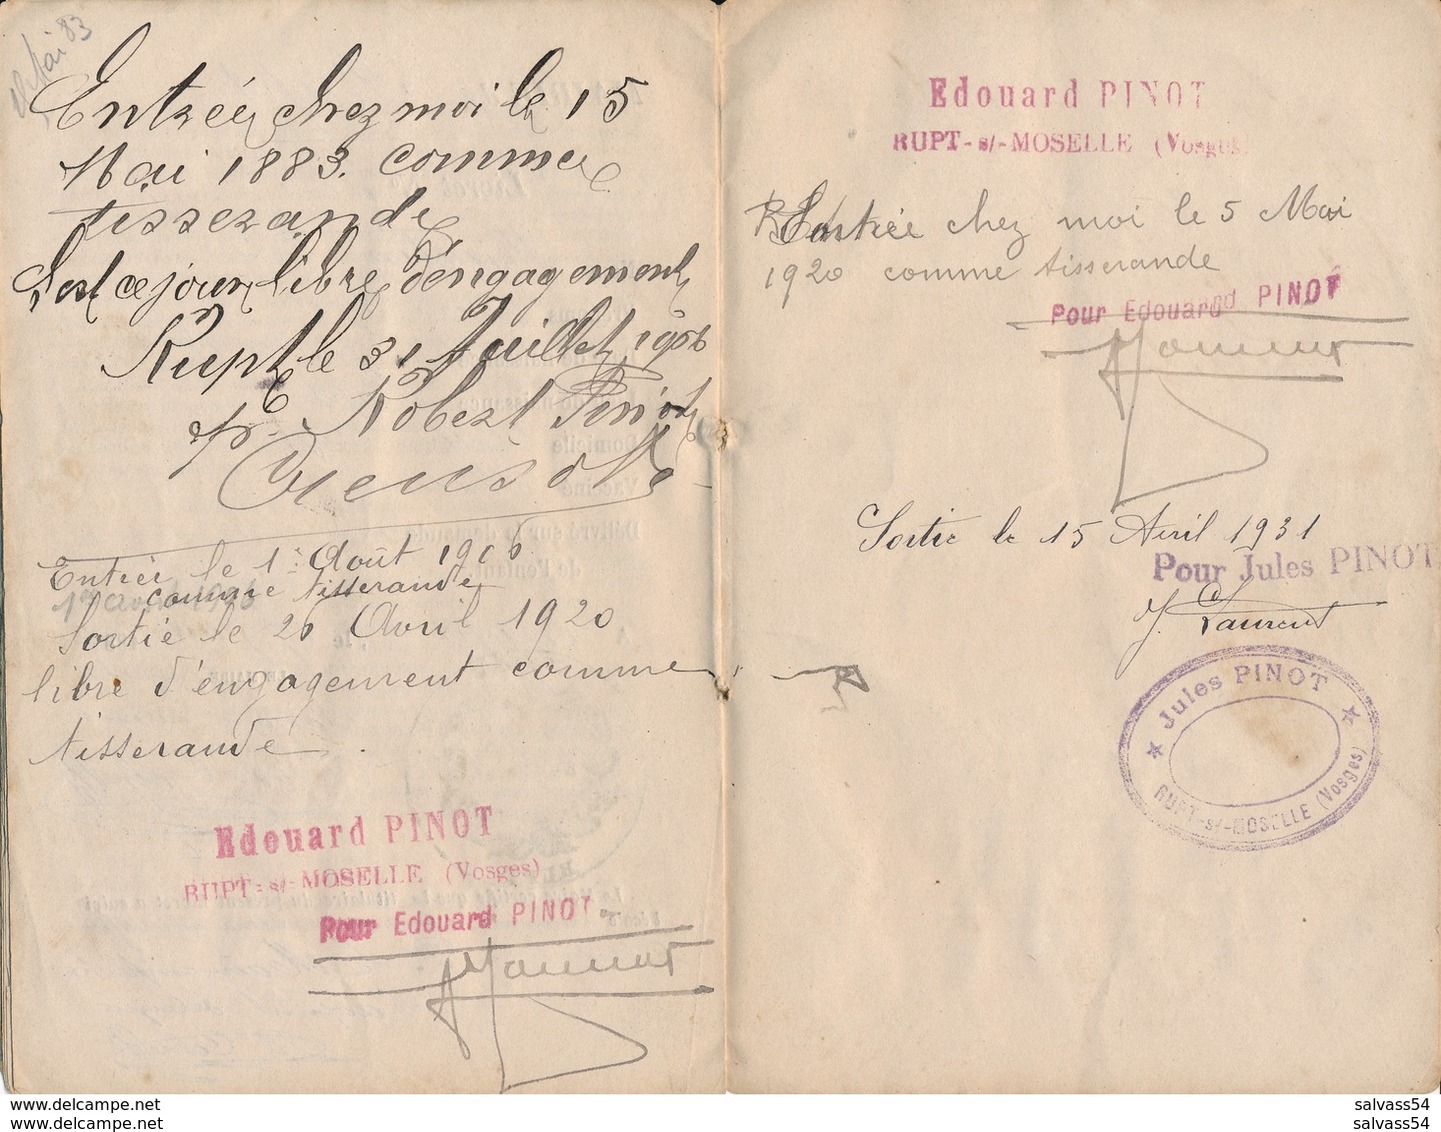 Mai 83
Entrée chez moi le 15
Mai 1883. comme
tisserande
Sort ce jour libre d'engagement
Rupt le 31 Juillet 1906
pr. Robert Pinot
Entrée le 1er Août 1906
comme tisserande
1er août 1906
Sortie le 26 Avril 1920
libre d'engagement comme
tisserande.
Edouard PINOT
RUPT-s/-MOSELLE (Vosges)
Pour Edouard PINOT
Edouard PINOT
RUPT-s/-MOSELLE (Vosges)
Rentrée chez moi le 5 Mai
1920 comme tisserande
Pour Edouard PINOT
Sortie le 15 Avril 1931
Pour Jules PINOT
J. Laurent
★ Jules PINOT ★
RUPT-s/-MOSELLE (Vosges)
www.delcampe.net
www.delcampe.net
salvass54
salvass54